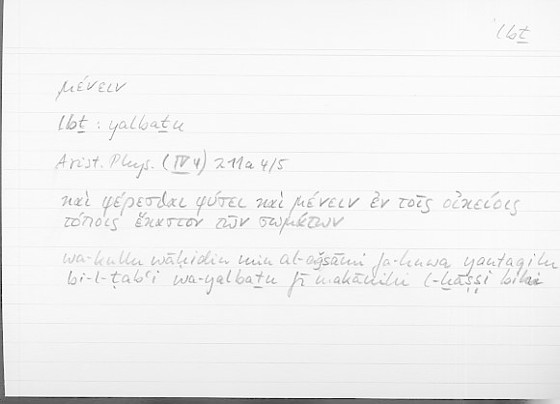 lbṯ
μένειν
lbṯ : yalbaṯu
Arist. Phys. (IV 4) 211a4/5
καὶ φέρεσθαι φύσει καὶ μένειν ἐν τοῖς οἰκείοις
τόποις ἕκαστον τῶν σωμάτων
wa-kullu wāḥidin min al-aǧsāmi fa-huwa yantaqilu
bi-l-ṭabʿi wa-yalbaṯu fī makānihi l-ḫāṣṣi bihi